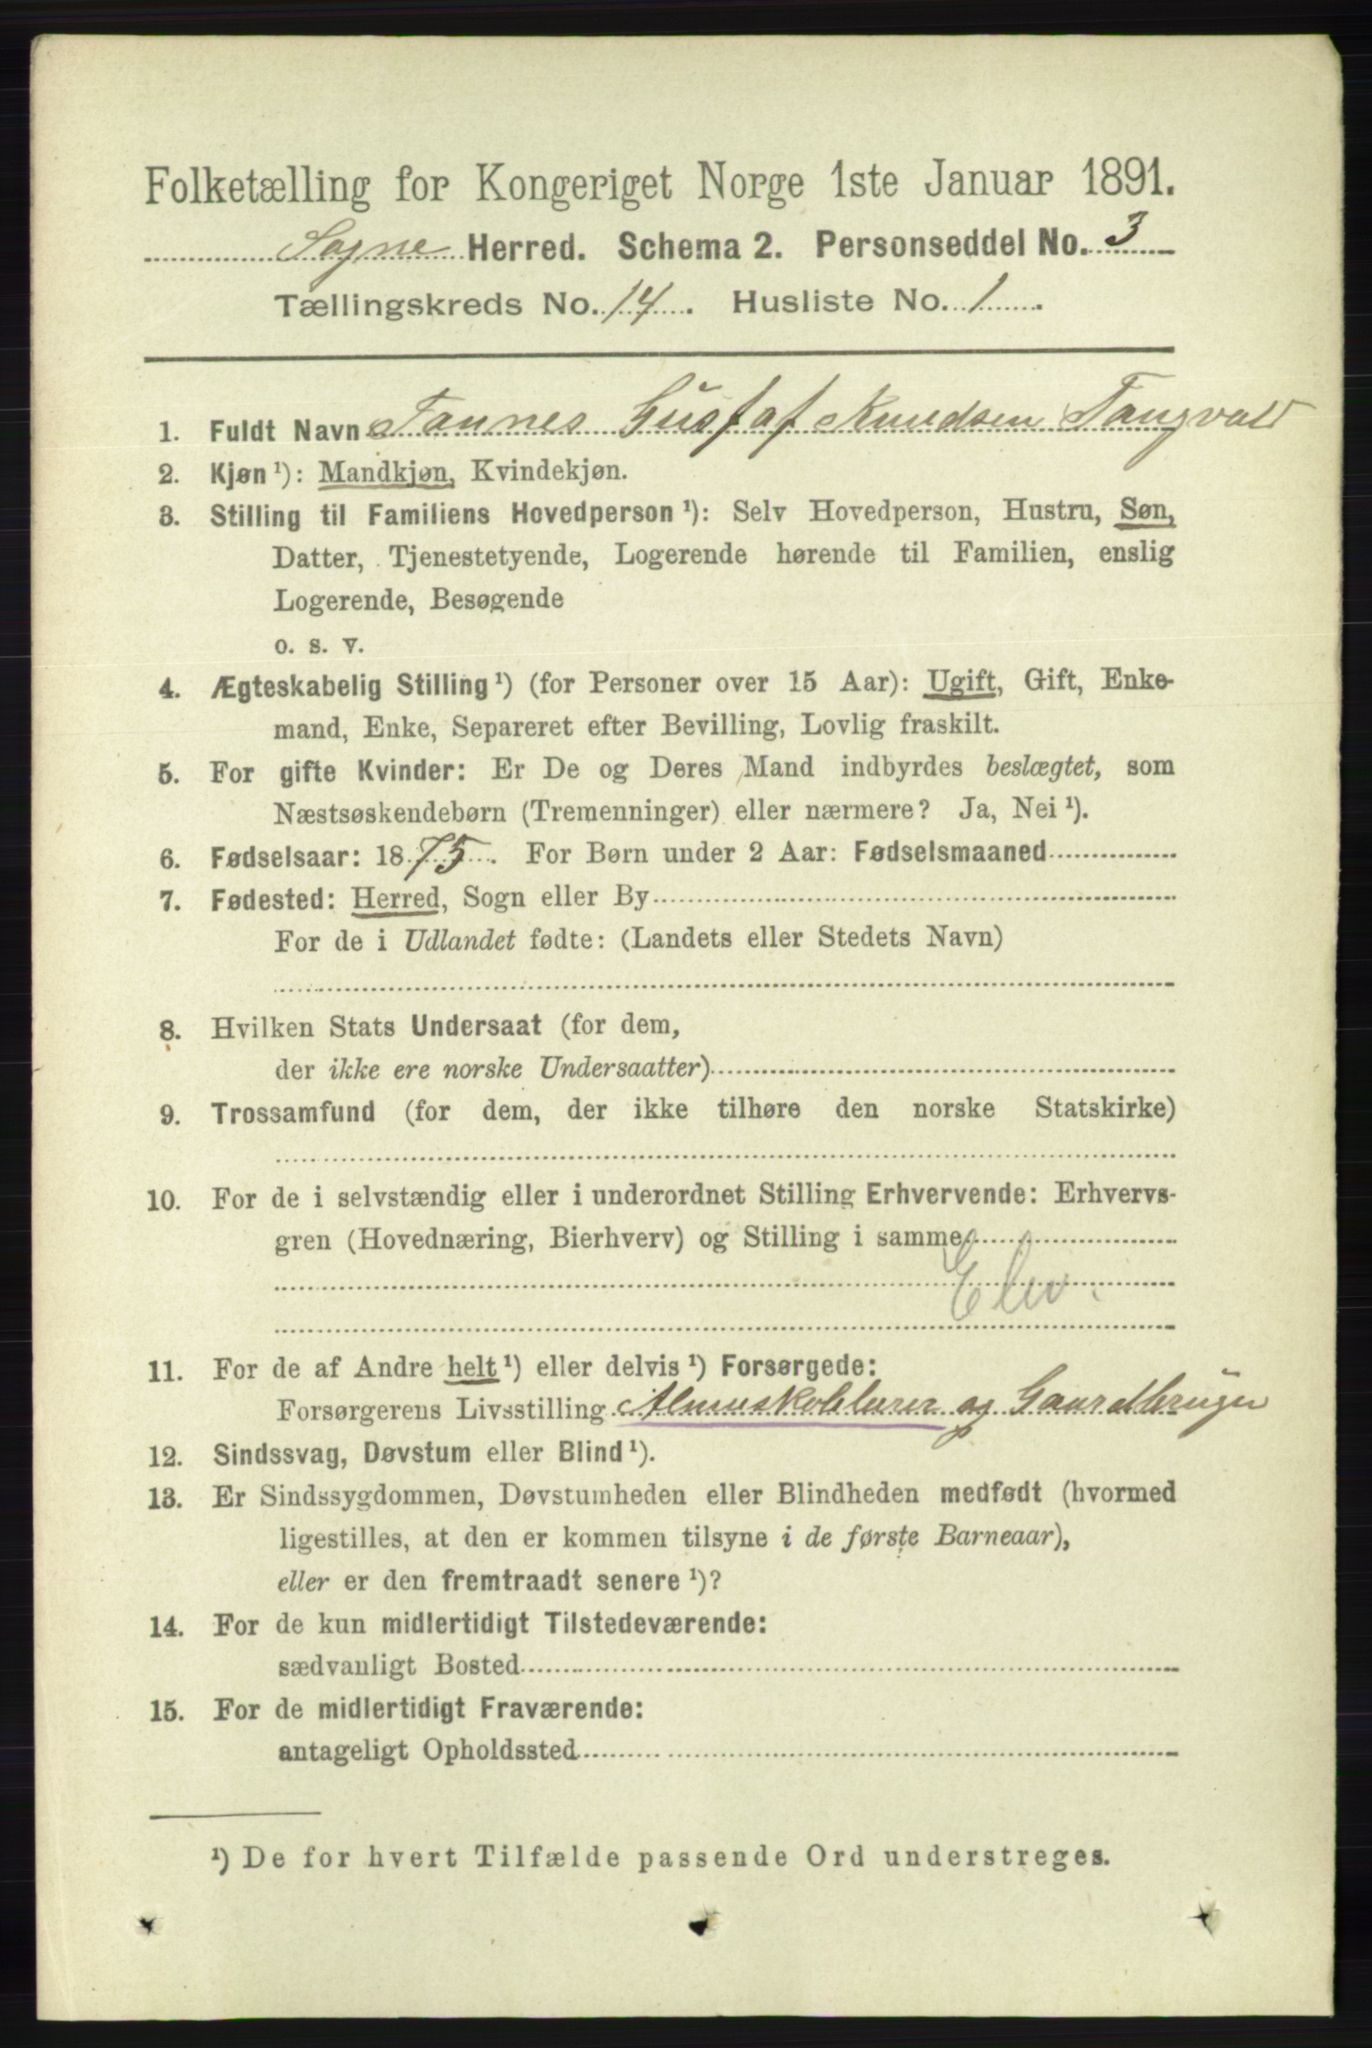 Folketælling for Kongeriget Norge 1ste Januar 1891.
Søgne Herred. Schema 2. Personseddel No. 3
Tællingskreds No. 14. Husliste No. 1.
1. Fuldt Navn Tønnes Gustaf Knudsen Tangvald
2. Kjøn ¹): Mandkjøn, Kvindekjøn.
3. Stilling til Familiens Hovedperson ¹): Selv Hovedperson, Hustru, Søn,
Datter, Tjenestetyende, Logerende hørende til Familien, enslig
Logerende, Besøgende
o. s. v.
4. Ægteskabelig Stilling ¹) (for Personer over 15 Aar): Ugift, Gift, Enke-
mand, Enke, Separeret efter Bevilling, Lovlig fraskilt.
5. For gifte Kvinder: Er De og Deres Mand indbyrdes beslægtet, som
Næstsøskendebørn (Tremenninger) eller nærmere? Ja, Nei ¹).
6. Fødselsaar: 1875. For Børn under 2 Aar: Fødselsmaaned
7. Fødested: Herred, Sogn eller By
For de i Udlandet fødte: (Landets eller Stedets Navn)
8. Hvilken Stats Undersaat (for dem,
der ikke ere norske Undersaatter)
9. Trossamfund (for dem, der ikke tilhøre den norske Statskirke)
10. For de i selvstændig eller i underordnet Stilling Erhvervende: Erhvervs-
gren (Hovednæring, Bierhverv) og Stilling i samme
Elev.
11. For de af Andre helt ¹) eller delvis ¹) Forsørgede:
Forsørgerens Livsstilling Almueskolelærer og Gaardbruger
12. Sindssvag, Døvstum eller Blind ¹).
13. Er Sindssygdommen, Døvstumheden eller Blindheden medfødt (hvormed
ligestilles, at den er kommen tilsyne i de første Barneaar),
eller er den fremtraadt senere ¹)?
14. For de kun midlertidigt Tilstedeværende:
sædvanligt Bosted
15. For de midlertidigt Fraværende:
antageligt Opholdssted
¹) De for hvert Tilfælde passende Ord understreges.